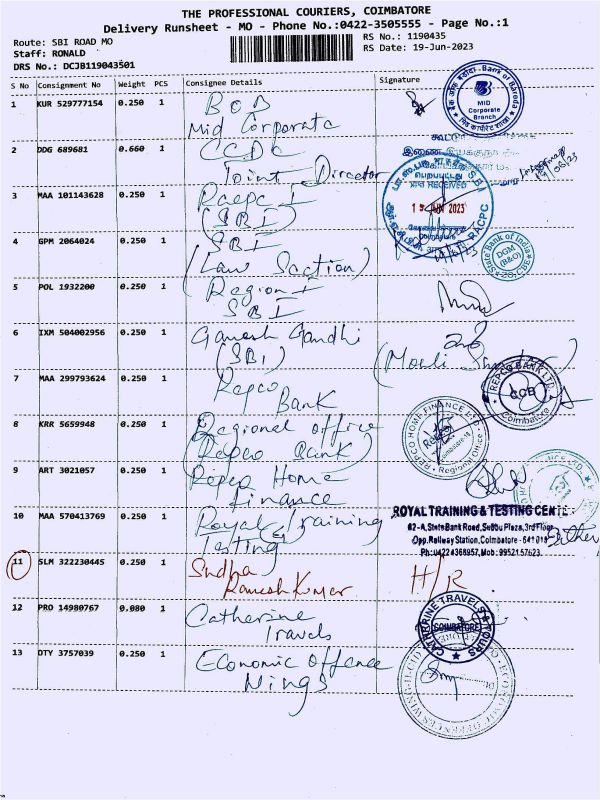 THE PROFESSIONAL COURIERS, COIMBATORE
Delivery Runsheet - MO - Phone No.:0422-3505555 - Page No.:1
Route: SBI ROAD MO
RS No.: 1190435
Staff: RONALD
RS Date: 19-Jun-2023
DRS No.: DCJB119043501
S No Consignment No Weight PCS Consignee Details Signature
1 KUR 529777154 0.250 1 BOB
Mid Corporate
Bank of Baroda
MID
Corporate
Branch
2 DDG 689681 0.660 1 CCDC
Joint Director
3 MAA 101143628 0.250 1 Racpc I
(SBI)
RECEIVED
JUN 2023
SBI
RACPC
4 GPM 2064024 0.250 1 SBI
(Law Section)
State Bank of India
DGM
(B&O)
CBE
5 POL 1932200 0.250 1 Region-I
SBI
6 IXM 504002956 0.250 1 Ganesh Gandhi
(SBI)
7 MAA 299793624 0.250 1 Repco
Bank
REPCO BANK LTD.
CCB
Coimbatore
8 KRR 5659948 0.250 1 Regional office
(Repco Bank)
REPCO HOME FINANCE LTD
Regional Office
9 ART 3021057 0.250 1 Repco Home
Finance
10 MAA 570413769 0.250 1 Royal Training
Testing
ROYAL TRAINING & TESTING CENTRE
62-A, State Bank Road, Sebbu Plaza, 3rd Floor
Opp. Railway Station, Coimbatore - 641018
Ph: 0422 4368957, Mob: 9952157623.
11 SLM 322230445 0.250 1 Sudha
Rameshkumar
H/R
12 PRO 14980767 0.080 1 Catherine
Travels
CATHERINE TRAVELS & TOURS
COIMBATORE
13 DTY 3757039 0.250 1 Economic Offence
Wings